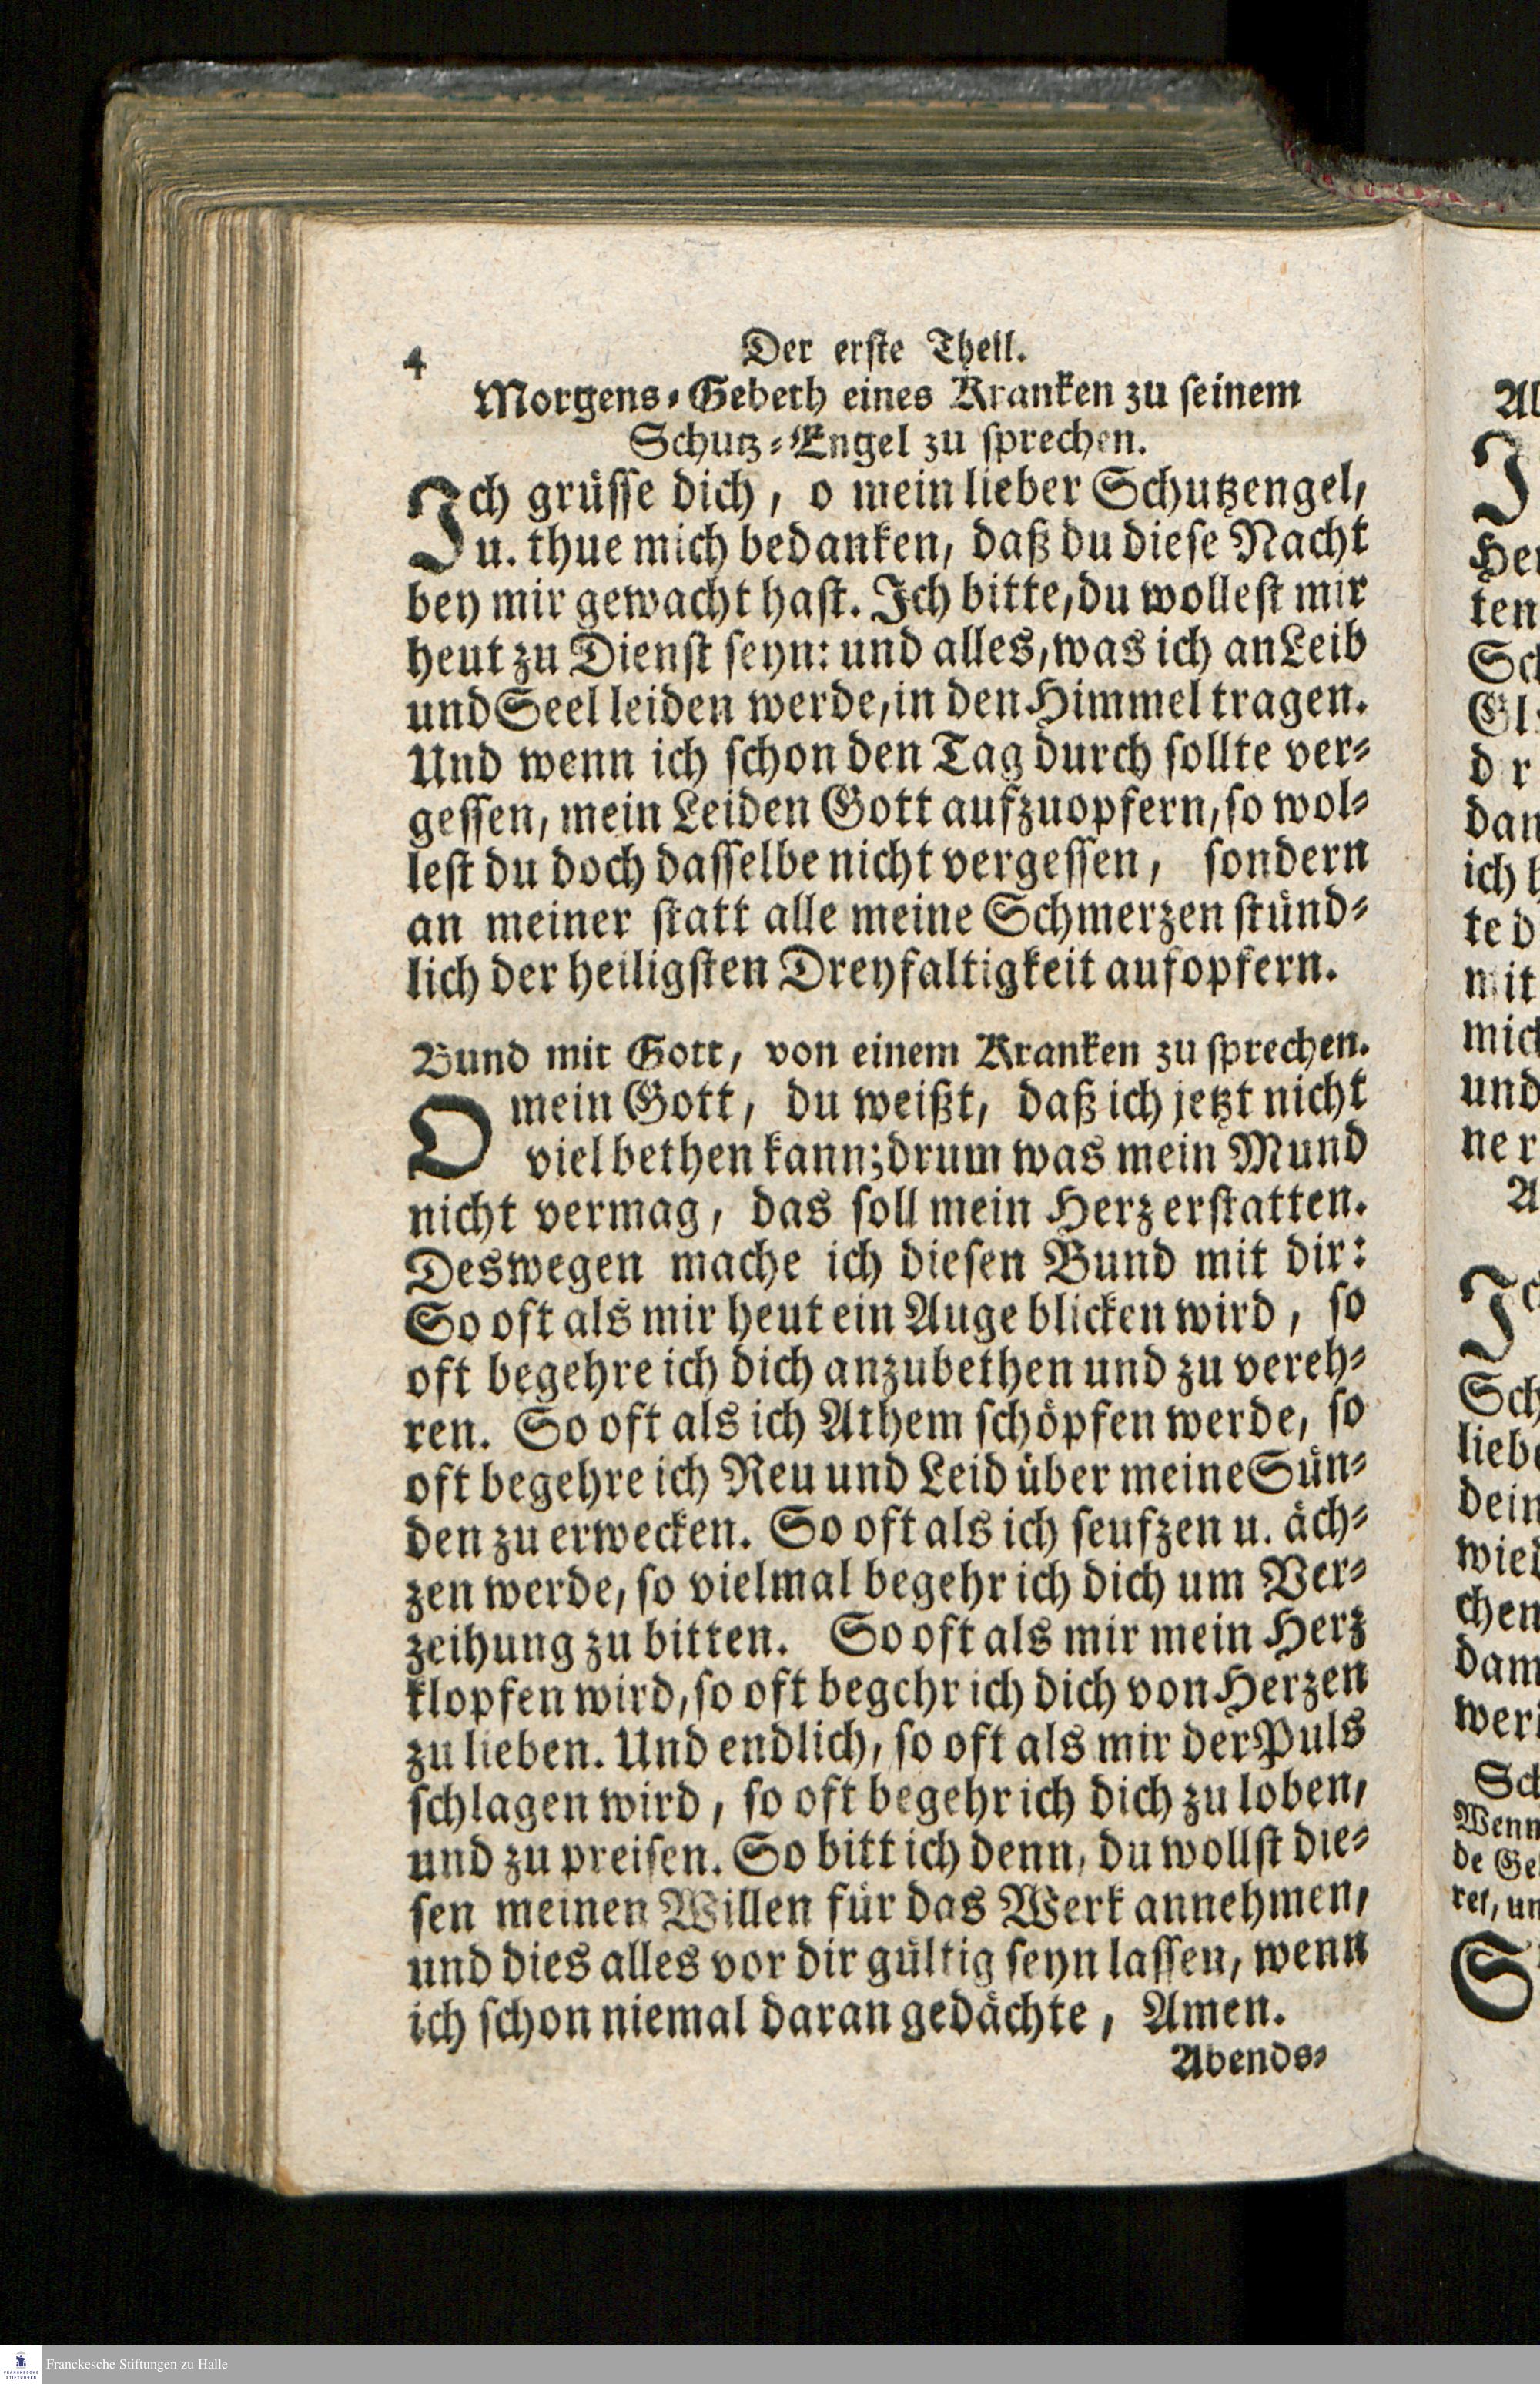 4
Der erste Theil.
Morgens-Gebeth eines Kranken zu seinem
Schutz-Engel zu sprechen.
Ich grüsse dich, o mein lieber Schutzengel,
u. thue mich bedanken, daß du diese Nacht
bey mir gewacht hast. Ich bitte, du wollest mir
heut zu Dienst seyn: und alles, was ich an Leib
und Seel leiden werde, in den Himmel tragen.
Und wenn ich schon den Tag durch sollte ver-
gessen, mein Leiden Gott aufzuopfern, so wol-
lest du doch dasselbe nicht vergessen, sondern
an meiner statt alle meine Schmerzen stünd-
lich der heiligsten Dreyfaltigkeit aufopfern.
Bund mit Gott, von einem Kranken zu sprechen.
O mein Gott, du weißt, daß ich jetzt nicht
viel bethen kann; drum was mein Mund
nicht vermag, das soll mein Herz erstatten.
Deswegen mache ich diesen Bund mit dir:
So oft als mir heut ein Auge blicken wird, so
oft begehre ich dich anzubethen und zu vereh-
ren. So oft als ich Athem schöpfen werde, so
oft begehre ich Reu und Leid über meine Sün-
den zu erwecken. So oft als ich seufzen u. äch-
zen werde, so vielmal begehr ich dich um Ver-
zeihung zu bitten. So oft als mir mein Herz
klopfen wird, so oft begehr ich dich von Herzen
zu lieben. Und endlich, so oft als mir der Puls
schlagen wird, so oft begehr ich dich zu loben,
und zu preisen. So bitt ich denn, du wollst die-
sen meinen Willen für das Werk annehmen,
und dies alles vor dir gültig seyn lassen, wenn
ich schon niemal daran gedächte, Amen.
Abends-
Franckesche Stiftungen zu Halle